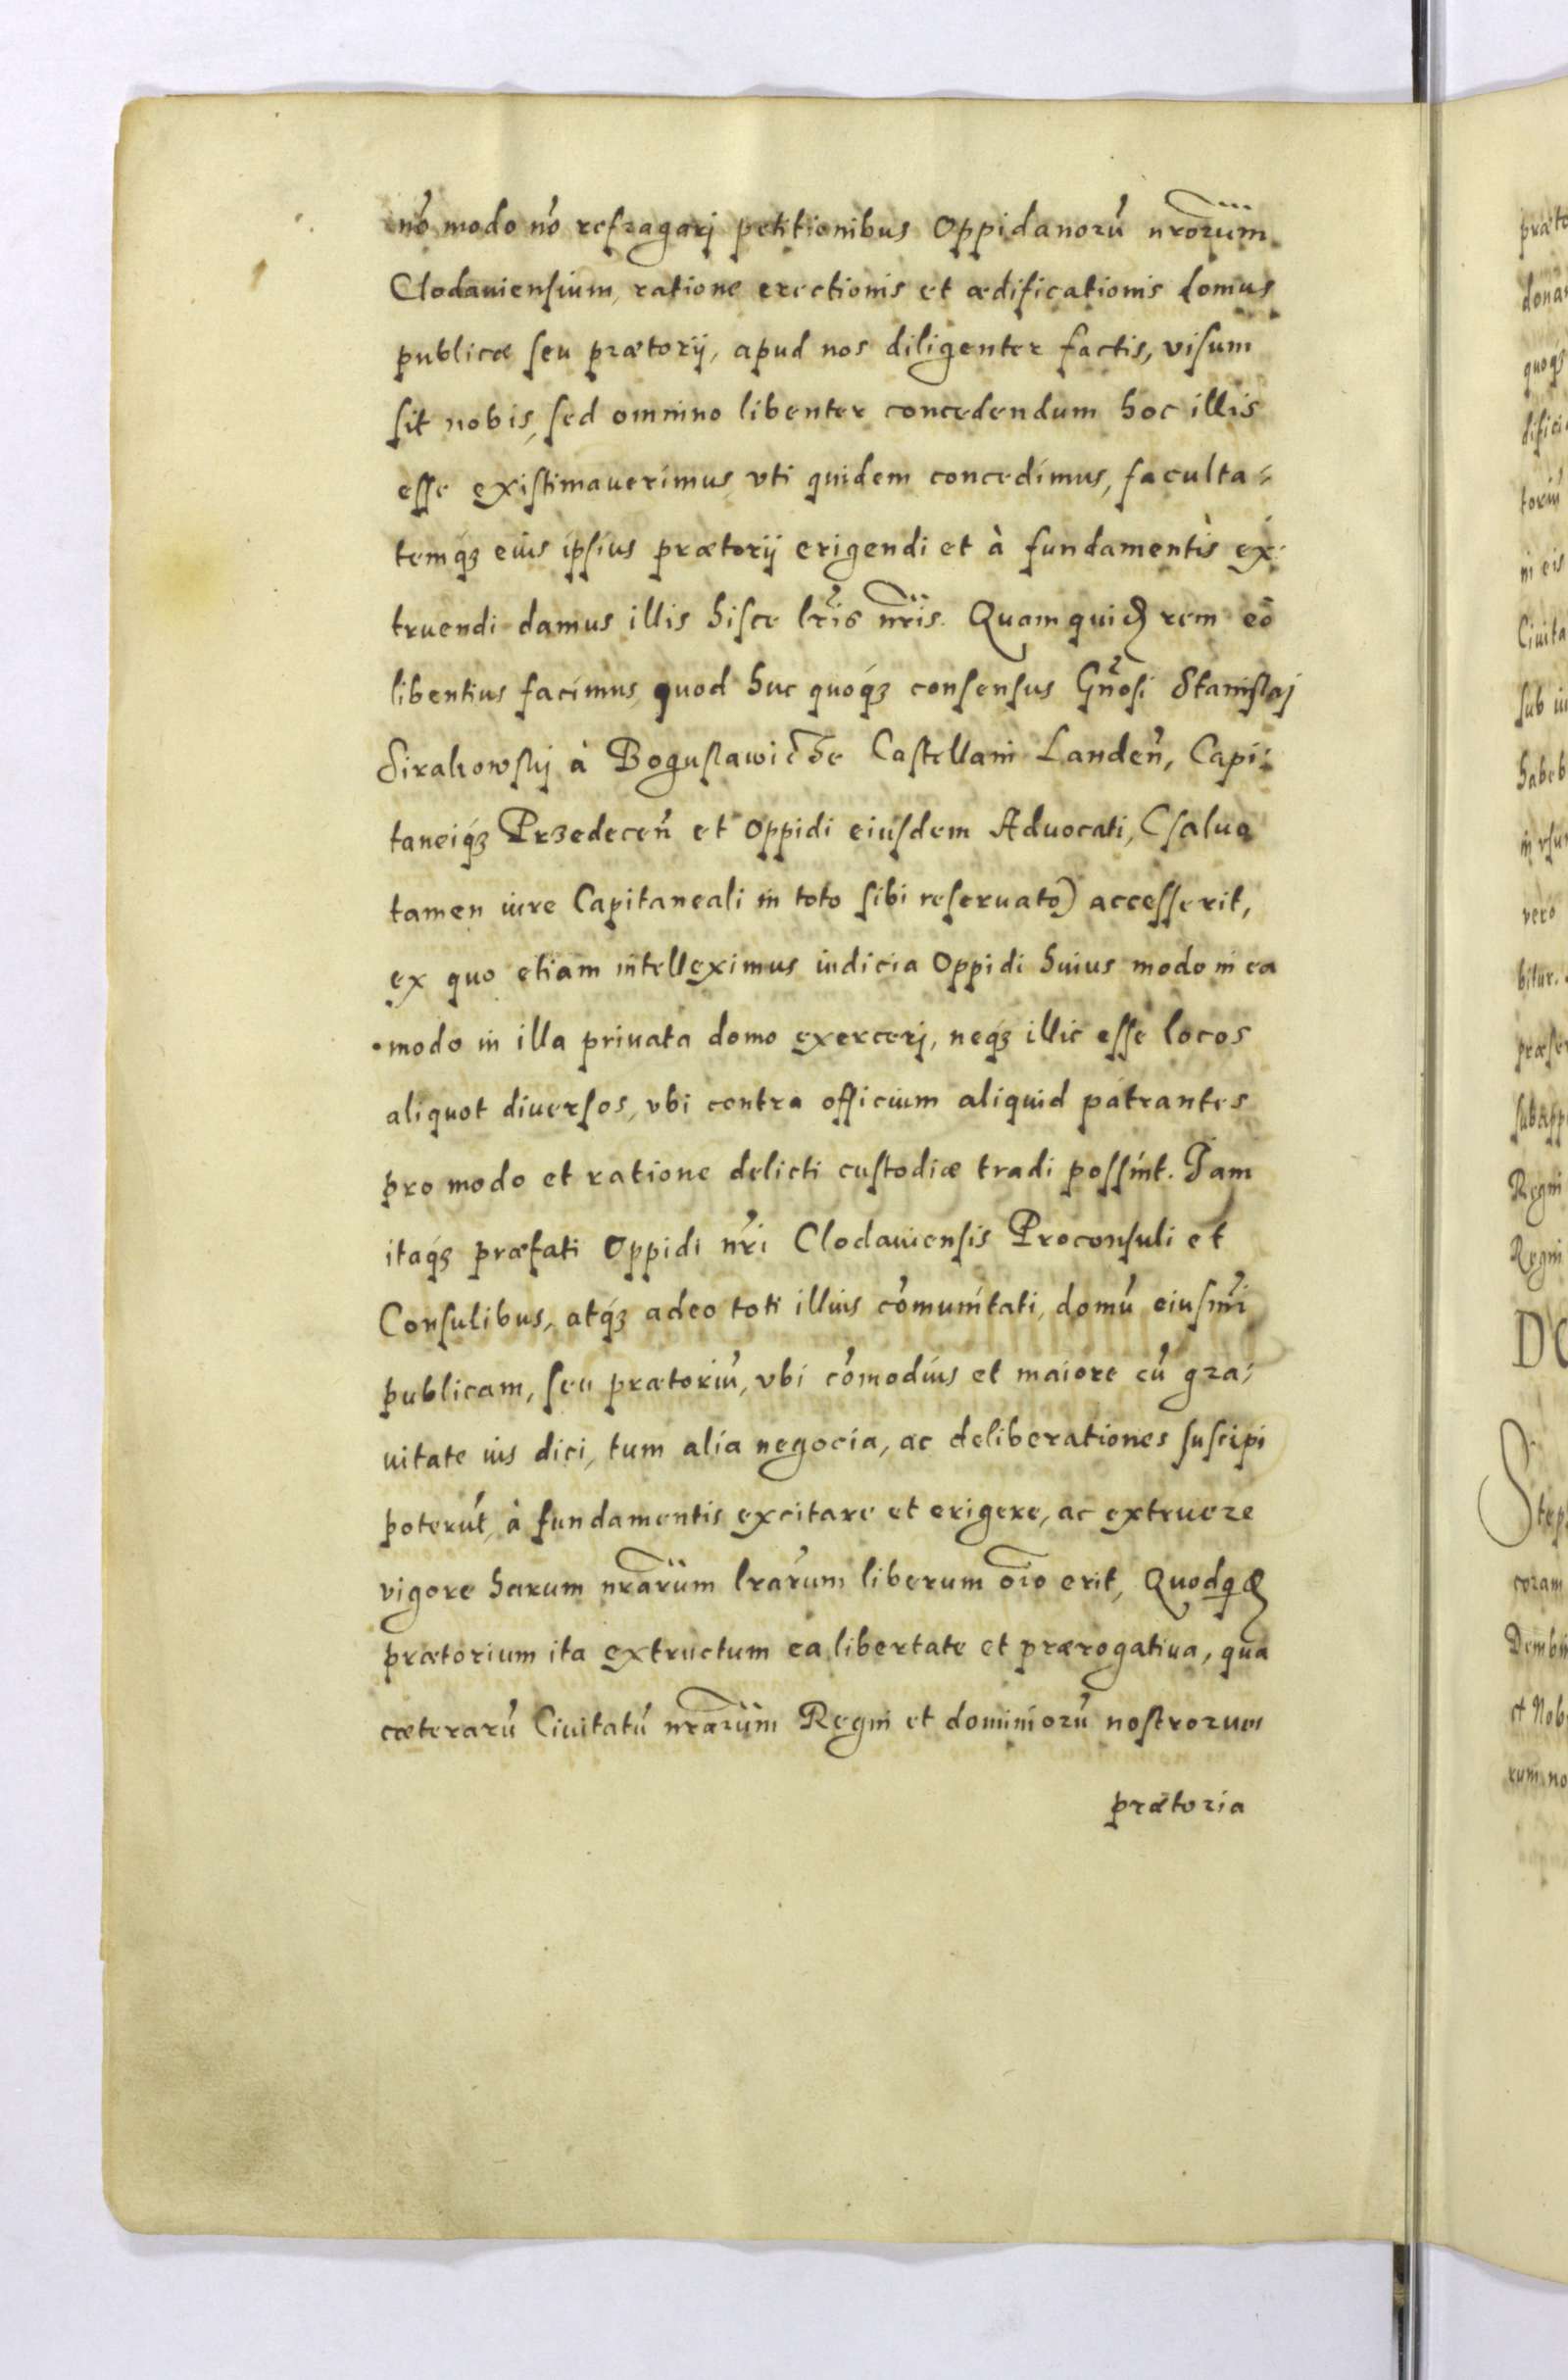 nō modo nō refragarj petitionibus Oppidanorū nrōrum
Clodauiensium, ratione erectionis et ædificationis domus
publicæ seu prætorij, apud nos diligenter factis, visum
sit nobis, sed omnino libenter concedendum hoc illis
esse existimauerimus, vti quidem concedimus, faculta-
temq́ꝫ eius ipsius prætorij erigendi et à fundamentis ex-
truendi damus illis hisce lr̃is nr̃is. Quam quid̃ rem eō
libentius facimus, quod huc quoq́ꝫ consensus Gn̄osi Stanislaj
Sirakowskj à Boguslawicħe Castellani Landen̄, Capi-
taneiq́ꝫ Przedecen̄ et Oppidi eiusdem Aduocati, (saluo
tamen iure Capitaneali in toto sibi reseruato) accesserit,
ex quo etiam intelleximus iudicia Oppidi huius modo in ea
modo in illa priuata domo exercerj, neq́ꝫ illic esse locos
aliquot diuersos, vbi contra officium aliquid patrantes
pro modo et ratione delicti custodiæ tradi possint. Jam
itaq́ꝫ præfati Oppidi nr̃i Clodauiensis Proconsuli et
Consulibus, atq́ꝫ adeo toti illius cōmunitati, domū eiusm̄i
publicam, seu prætoriū, vbi cōmodius et maiore cū gra-
uitate ius dici, tum alia negocia, ac deliberationes suscipi
poterūt, à fundamentis excitare et erigere, ac extruere
vigore harum nrārum lrārum liberum oīo erit, Quodq́ꝫ
prætorium ita extructum ea libertate et prærogatiua, qua
cæterarū Ciuitatū nrārum Regni et dominiorū nostrorum
prætoria